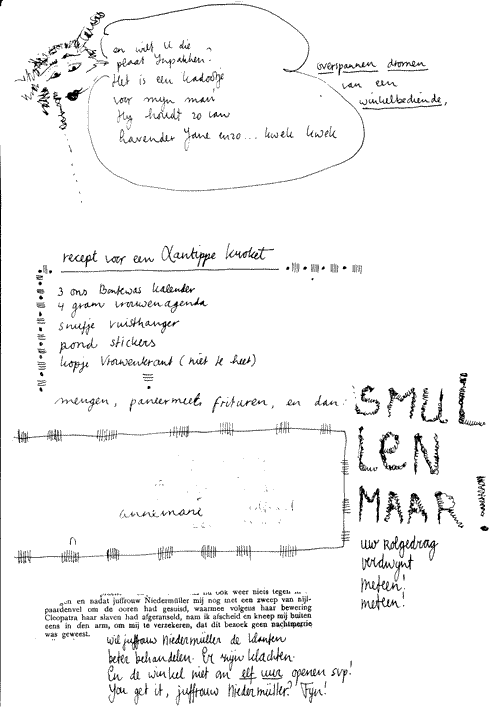 en wilt U die
plaat inpakken.
Het is een kadootje
voor mijn man
Hij houdt zo van
havender Jane enzo... kwek kwek
overspannen dromen
van een
winkelbediende,
recept voor een Xantippe kroket
3 ons Bontewas kalender
4 gram vrouwenagenda
snufje vuisthanger
pond stickers
kopje Vrouwenkrant (niet te heet)
mengen, paneermeel, frituren, en dan:
SMUL
LEN
MAAR!
annemarie
uw rolgedrag
verdwijnt
meteen!
meteen!
ook weer niets tegen
en nadat juffrouw Niedermüller mij nog met een zweep van nijl-
paardenvel om de ooren had gesuisd, waarmee volgens haar bewering
Cleopatra haar slaven had afgeranseld, nam ik afscheid en kneep mij buiten
eens in den arm, om mij te verzekeren, dat dit bezoek geen nachtmerrie
was geweest.
wil juffrouw Niedermüller de klanten
beter behandelen. Er zijn klachten.
En de winkel niet om elf uur openen svp!
You get it, juffrouw Niedermüller? Fijn!